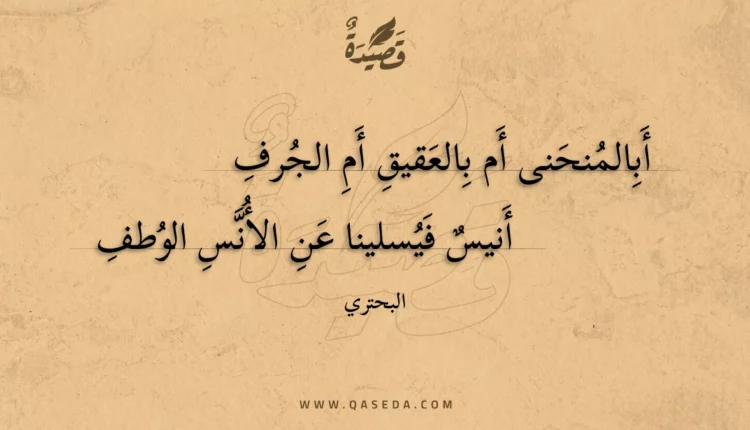 قَصِيدَةٌ
أَبِالمُنحَنى أَم بِالعَقيقِ أَمِ الجُرفِ
أَنيسٌ فَيُسلينا عَنِ الأُنَّسِ الوُطفِ
البحتري
WWW.QASEDA.COM